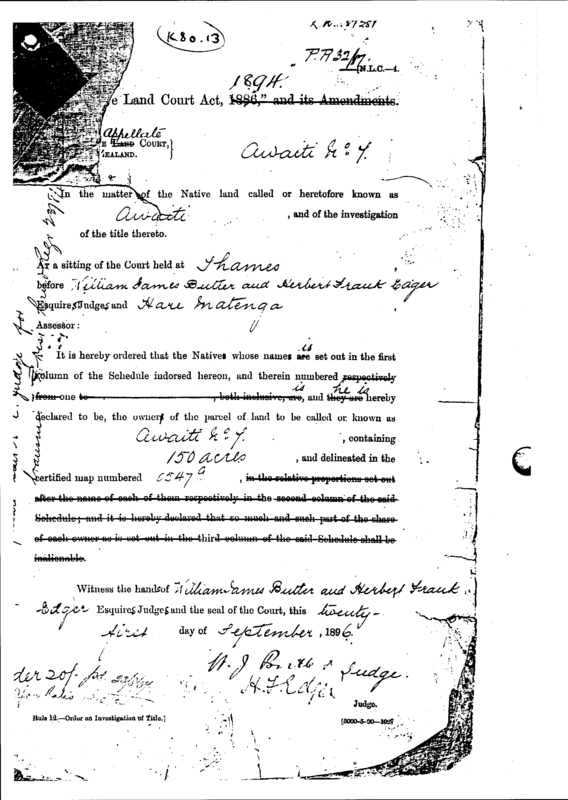 K80.13
P.A 32/17.
[N.L.C.—4.
1894.
e Land Court Act, 1886," and its Amendments.
Appellate
E LAND COURT,
EALAND.
Awaiti No 7.
In the matter of the Native land called or heretofore known as
Awaiti , and of the investigation
of the title thereto.
At a sitting of the Court held at Thames
before William James Butler and Herbert Frank Edger
Esquires, Judges and Hare Matenga
Assessor:
is
It is hereby ordered that the Natives whose names are set out in the first
column of the Schedule indorsed hereon, and therein numbered respectively
is he is
from one to , both inclusive, are, and they are hereby
declared to be, the owners of the parcel of land to be called or known as
Awaiti No 7. , containing
150 acres , and delineated in the
certified map numbered 6547a , in the relative proportions set out
after the name of each of them respectively in the second column of the said
Schedule; and it is hereby declared that so much and such part of the share
of each owner as is set out in the third column of the said Schedule shall be
inalienable.
Witness the hands of William James Butler and Herbert Frank
Edger Esquires, Judges and the seal of the Court, this twenty-
first day of September, 1896.
W. J. Butler Judge.
H. F. Edger
Judge.
der 20/-
Rule 12.—Order on Investigation of Title.]